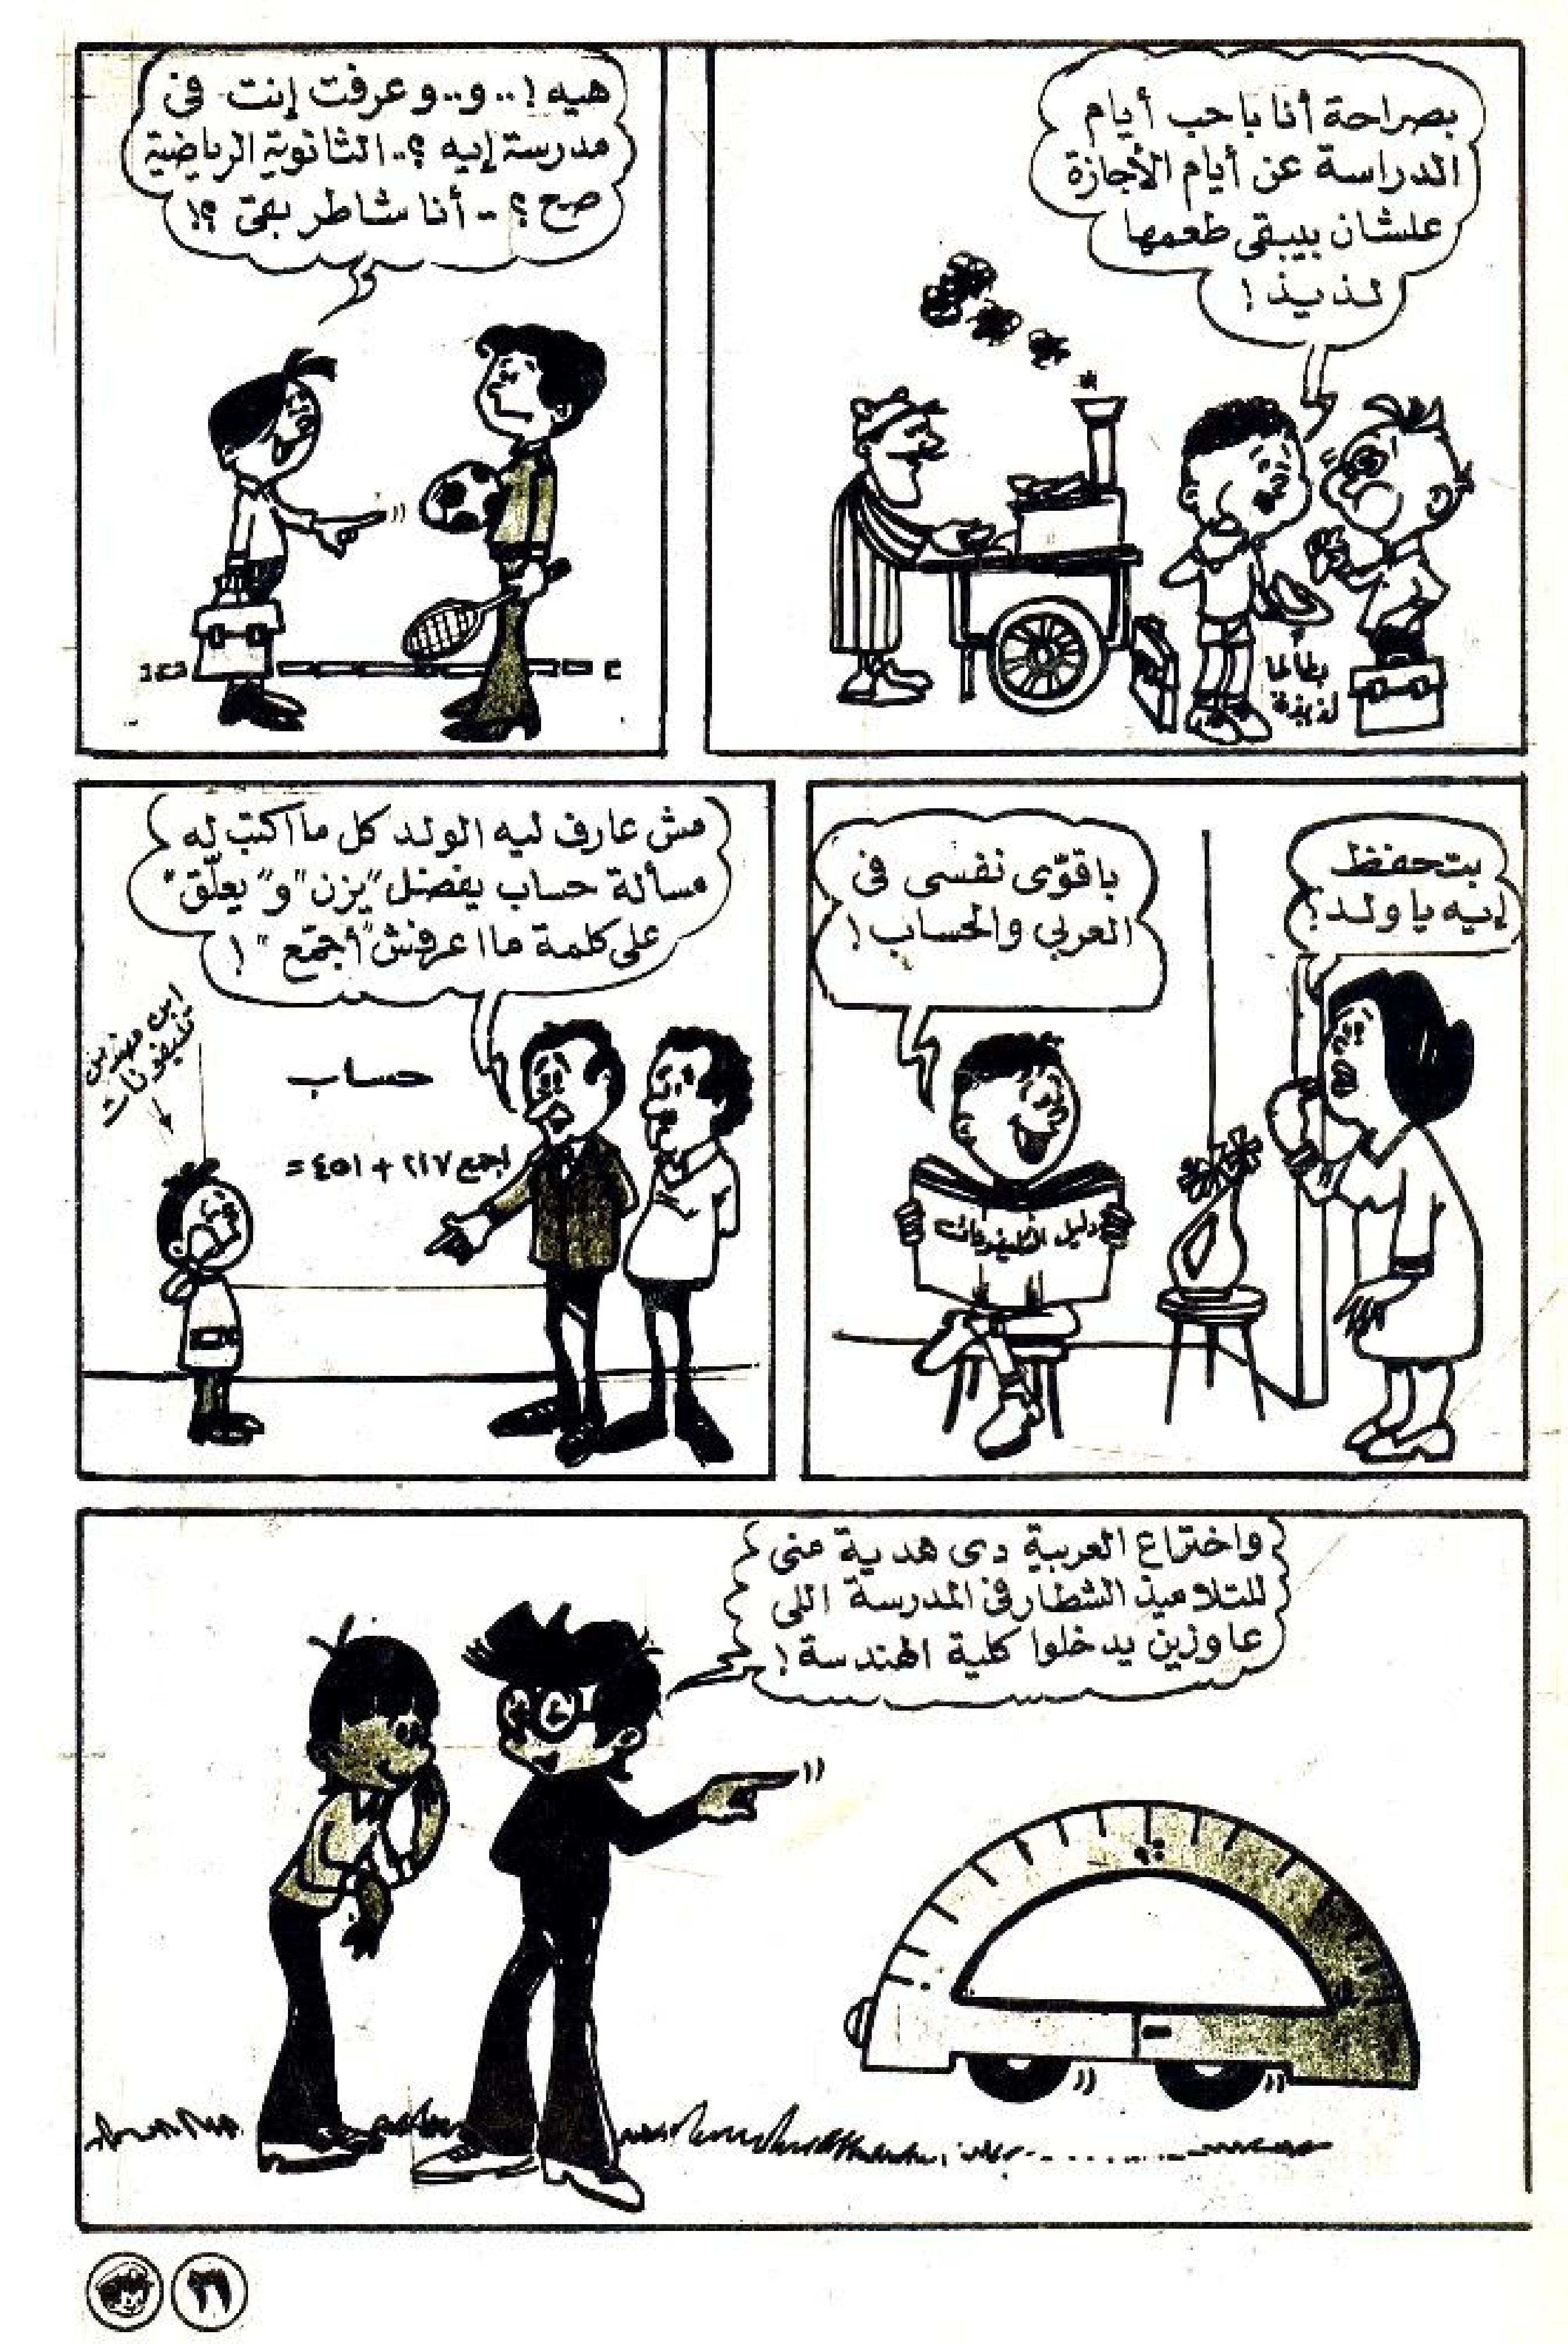 بصراحة أنا باحب أيام
الدراسة عن أيام الأجازة
علشان بيبقى طعمها
لذيذ!
بطاطا
لذيذة
هيه!..و..وعرفت إنت فى
مدرسة إيه؟..الثانوية الرياضية
صح؟-أنا شاطر بقى؟!
بتحفظ
إيه يا ولد؟
باقوّى نفسى فى
العربي والحساب!
دليل التليفونات
مش عارف ليه الولد كل ما اكتب له
مسألة حساب يفضل "يزن" و"يعلّق"
على كلمة ما اعرفش "أجمّع"!
ابن مهندس
تليفونات
حساب
اجمع ٢١٧ + ٤٥١ =
واختراع العربية دى هدية منى
للتلاميذ الشطار فى المدرسة اللى
عاوزين يدخلوا كلية الهندسة!
٩٠
٢٦